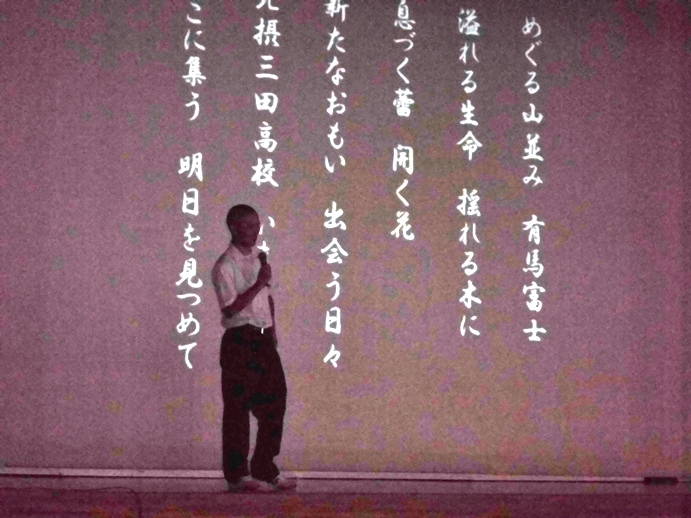 めぐる山並み 有馬富士
溢れる生命 揺れる木に
息づく蕾 開く花
新たなおもい 出会う日々
北摂三田高校 い
ここに集う 明日を見つめて